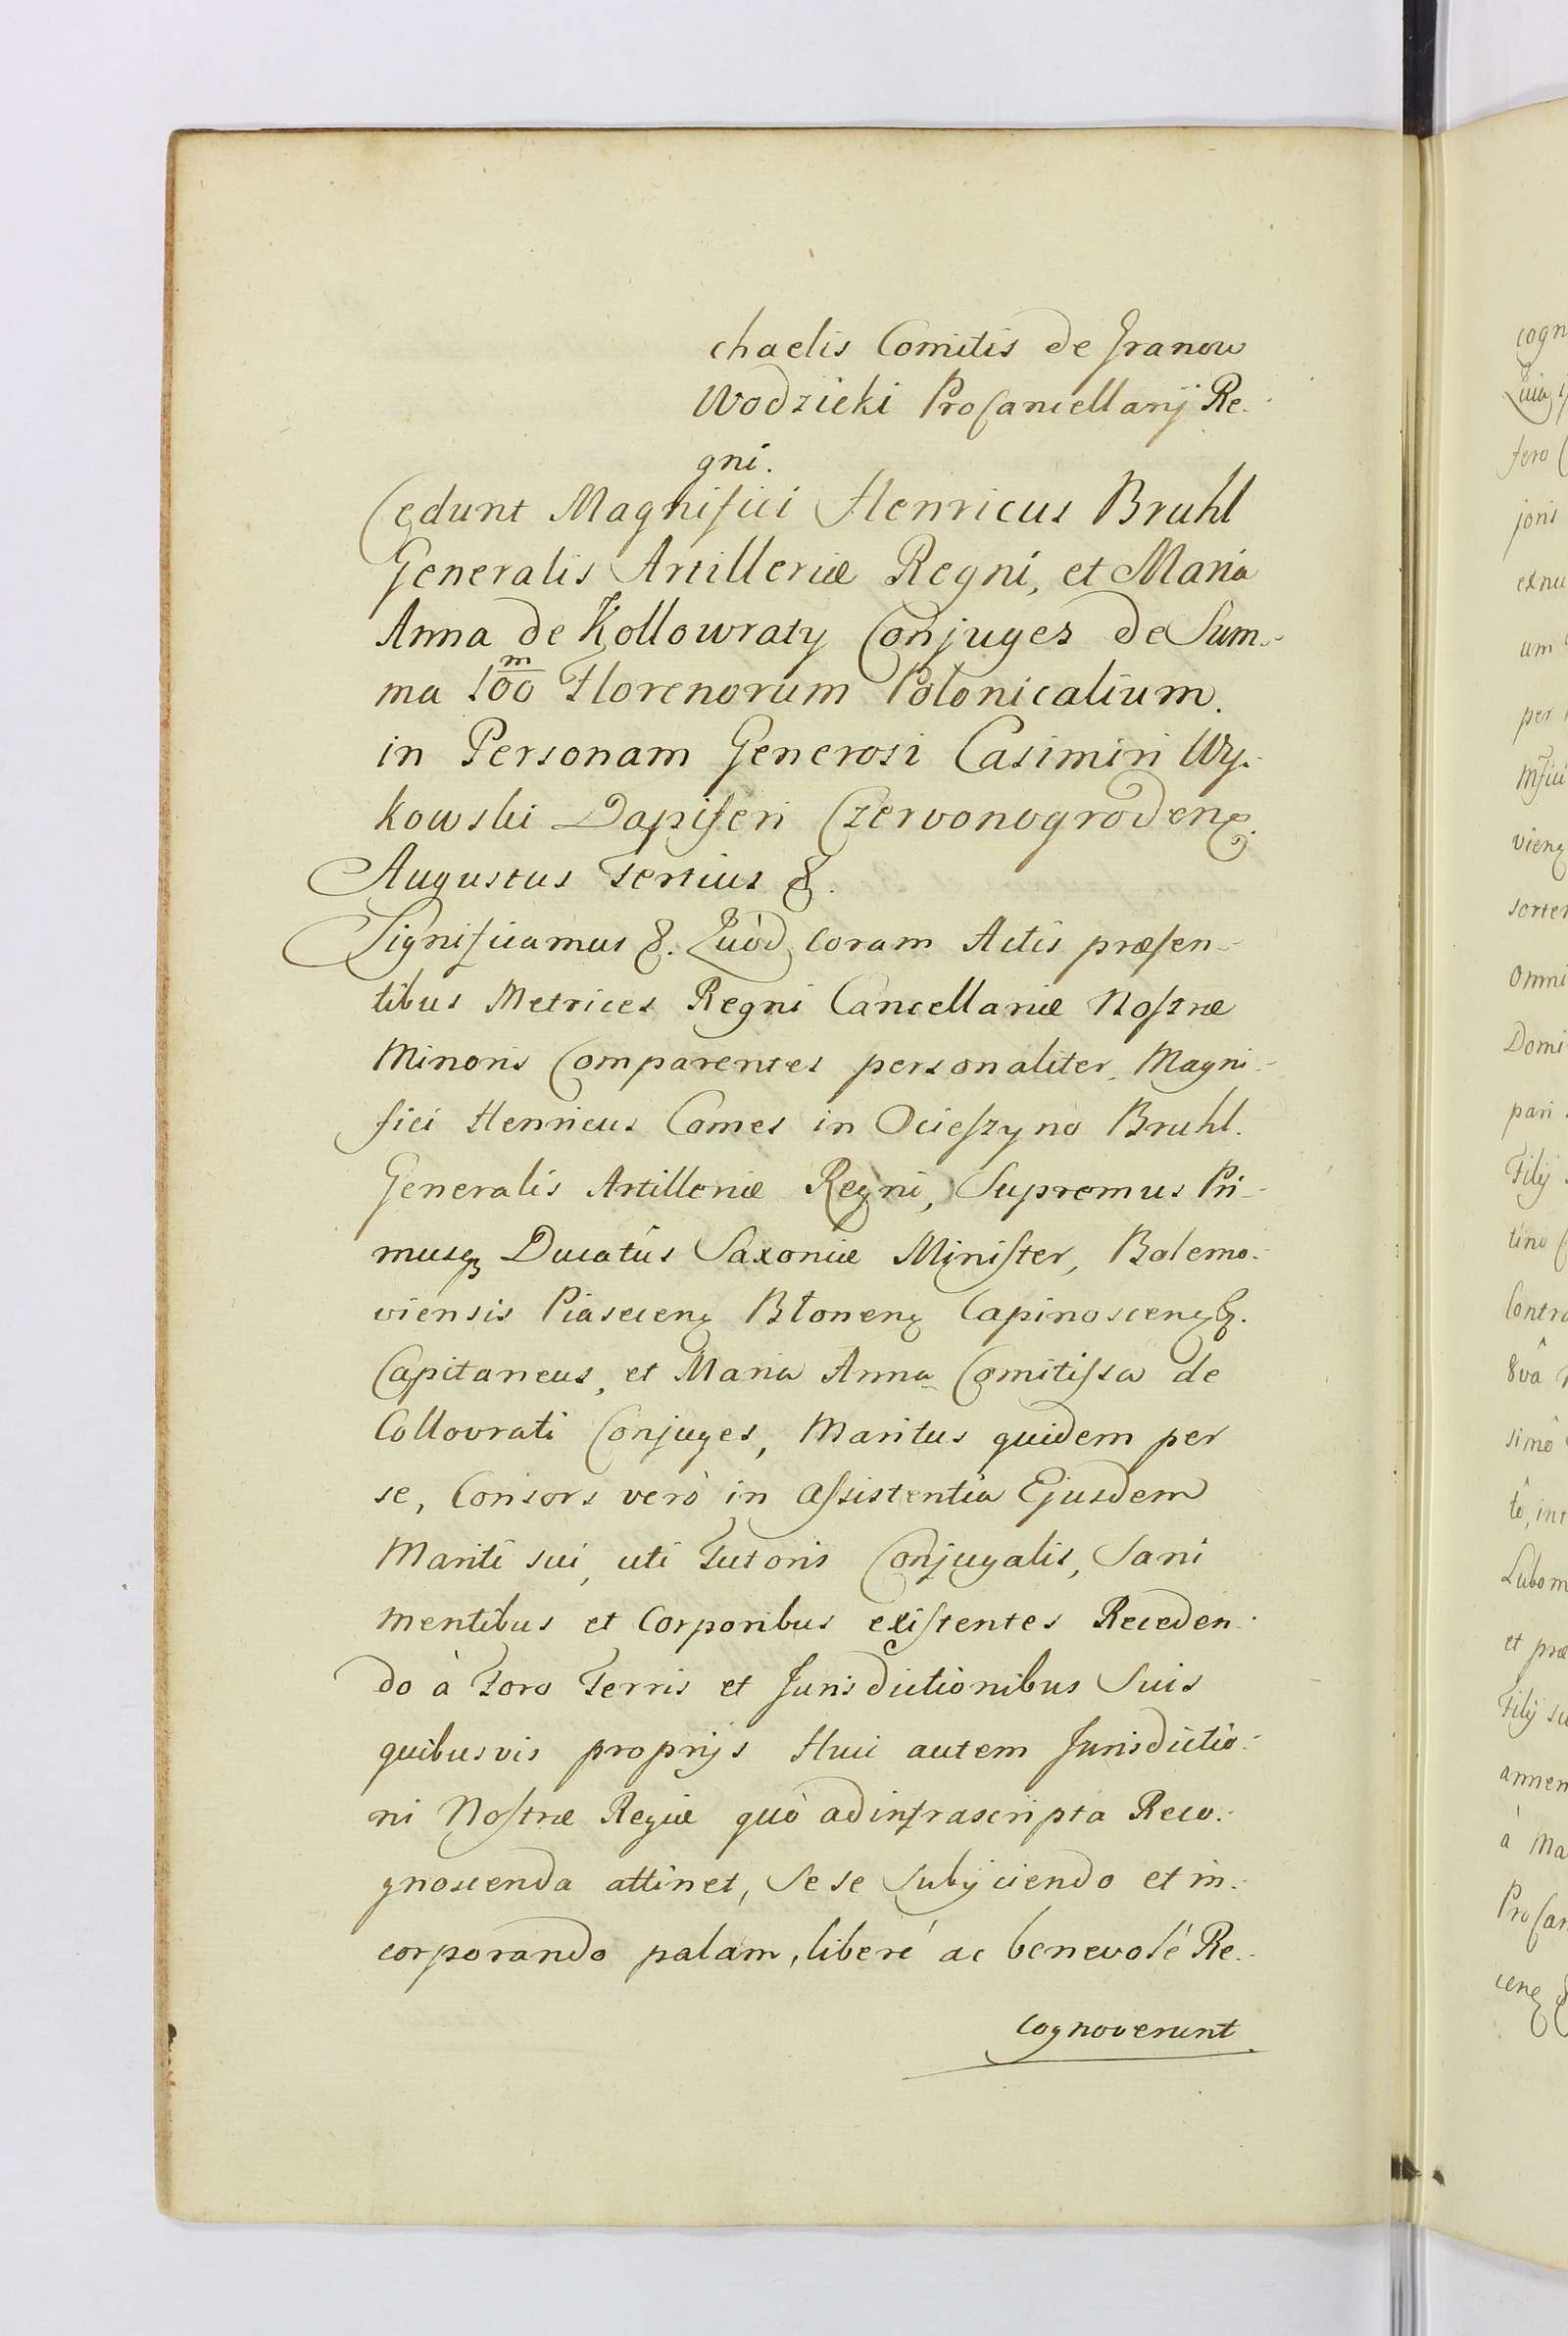 chaelis Comitis de Granow
Wodzicki ProCancellarij Re-
gni.
Cedunt Magnifici Henricus Bruhl
Generalis Artilleriæ Regni, et Maria
Anna de Kollowraty Conjuges de Sum-
ma 100 m Florenorum Polonicalium.
in Personam Generosi Casimiri Wy-
kowski Dapiferi Czervonogrodenꝫ.
Augustus Tertius &.
Significamus &. Quòd coram Actis præsen-
tibus Metrices Regni Cancellariæ Nostræ
Minoris Comparentes personaliter Magni-
fici Henricus Comes in Ocieszyno Bruhl.
Generalis Artilleriæ Regni, Supremus Pri-
musq Ducatûs Saxoniæ Minister, Bolemo-
viensis Piasecenꝫ Błonenꝫ Capinoscenꝫ &.
Capitaneus, et Maria Anna Comitissa de
Collovrati Conjuges, Maritus quidem per
se, Consors verò in assistentia Ejusdem
Mariti sui, uti Tutoris Conjugalis, Sani
mentibus et Corporibus existentes Receden-
do à Foro Terris et Jurisdictionibus Suis
quibusvis proprijs Huic autem Jurisdictio-
ni Nostræ Regiæ quò ad infrascripta Reco-
gnoscenda attinet, Se se Subijciendo et in-
corporando palam, liberè ac benevolè Re-
cognoverunt.
cogn
fero
joris
um
per
vienꝫ
Omni
Domi
pari
Filij
tino
Contra
simô
Lubom
et præ
Filij su
à Ma
ProCan
cenꝫ